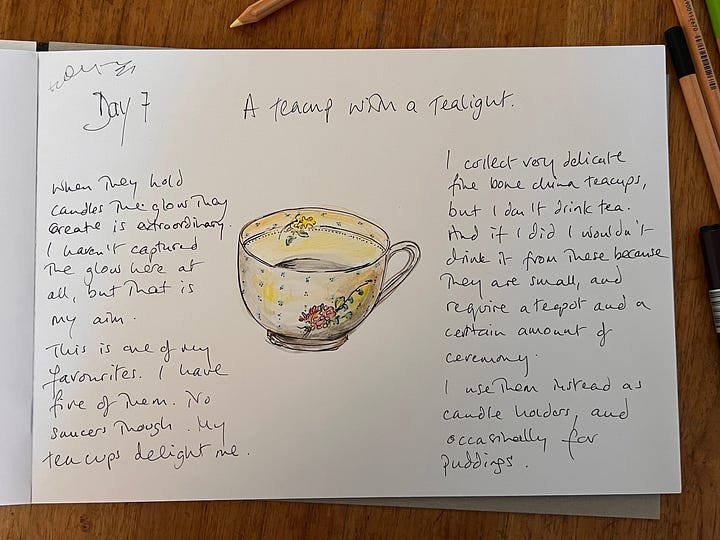 Day 7
A teacup with a tealight.
When they hold
candles the glow they
create is extraordinary.
I haven't captured
the glow here at
all, but that is
my aim.
This is one of my
favourites. I have
five of them. No
saucers though. My
teacups delight me.
I collect very delicate
fine bone china teacups,
but I don't drink tea.
And if I did I wouldn't
drink it from these because
they are small, and
require a teapot and a
certain amount of
ceremony.
I use them instead as
candle holders, and
occasionally for
puddings.